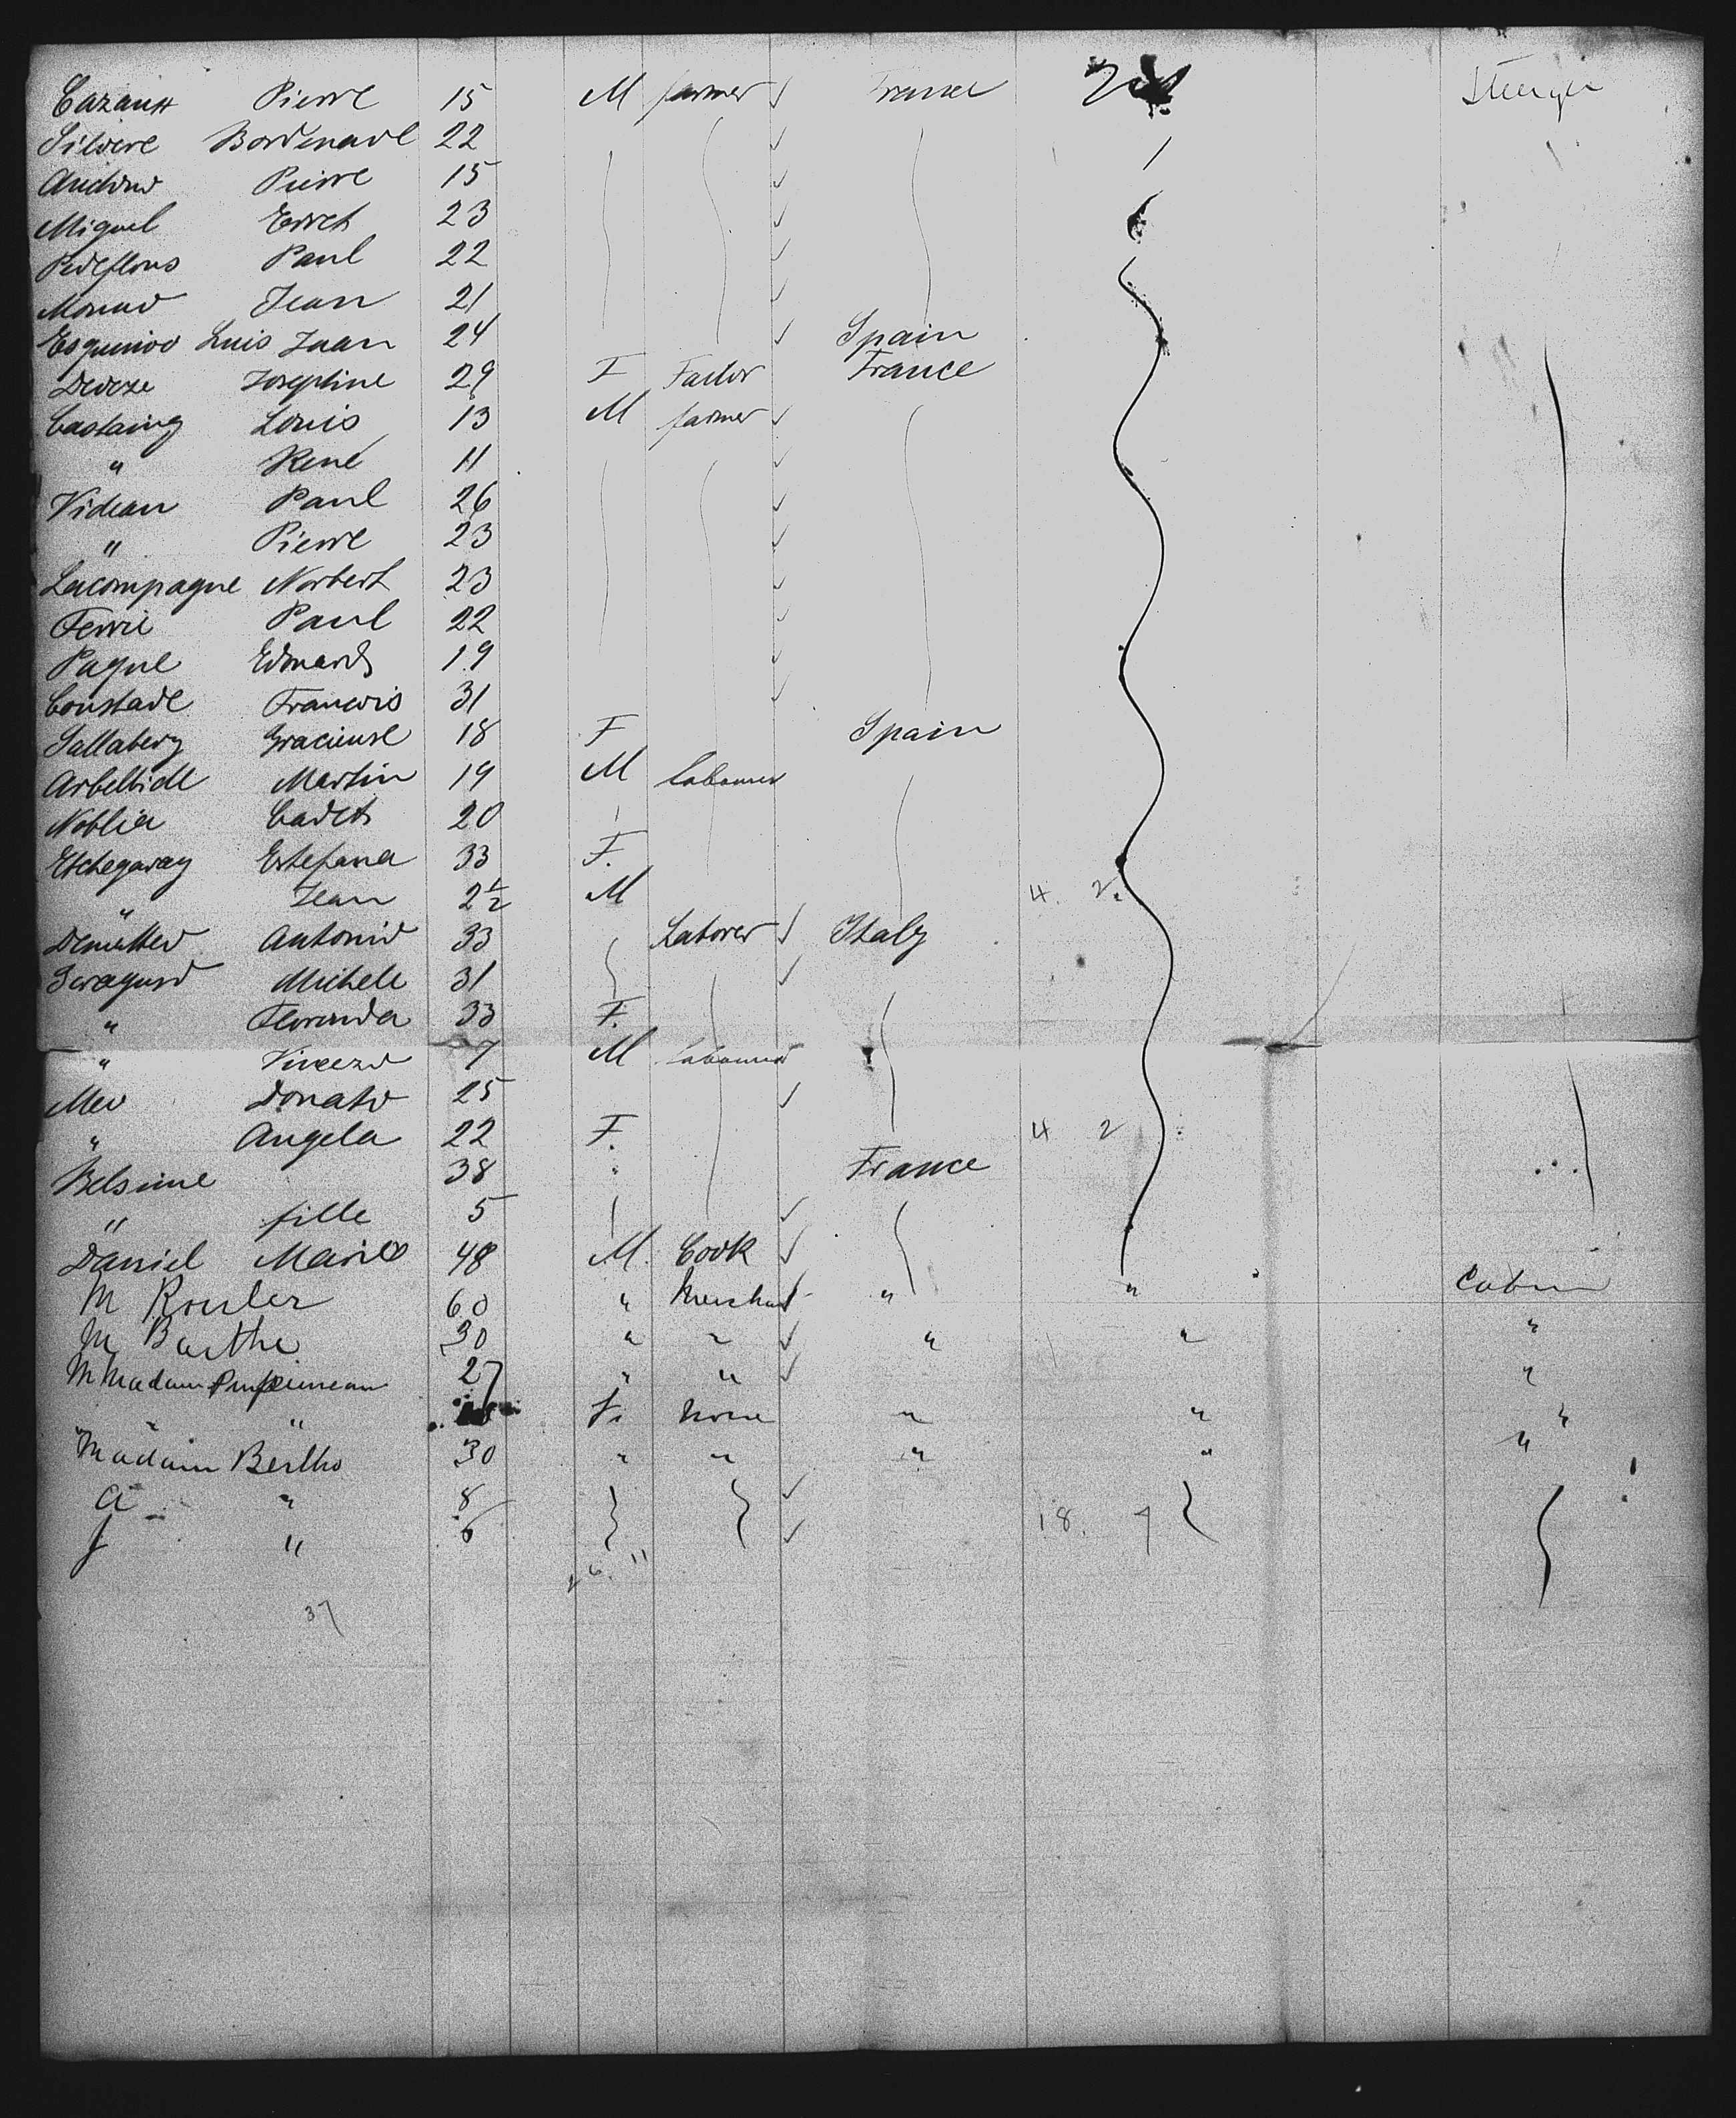 Pierre 15 M farmer France Steerage
Silvere Bordenave 22
Pierre 15
Miguel Erreh 23
Pedeflous Paul 22
Jean 21
Luis Juan 24 Spain
Josephine 29 F France
Castaing Louis 13 M farmer
" René 11
Videau Paul 26
" Pierre 23
Lacompagne Norbert 23
Ferrié Paul 22
Paque Edouard 19
Coustade Francois 31
Sallabery Gracieuse 18 F Spain
Arbeltide Martin 19 M labourer
Noblia Cadet 20
Etchegaray Estefana 33 F.
" Jean 2½ M 4. 2.
Antonio 33 Laborer Italy
Michele 31
" Florinda 33 F.
" Vincenzo 7 M labourer
Meo Donato 25
" Angela 22 F. 4 2
Belsime 38 " France
" fille 5
Daniel Marie 48 M. Cook
M Rouler 60 " Merchant " " Cabin
M Barthe 30 " " " " "
M Madam 27 " " "
" " F. None " " "
Madam Bertho 30 " " " " "
a " 8
J " 6 18. 7
26. 11
37